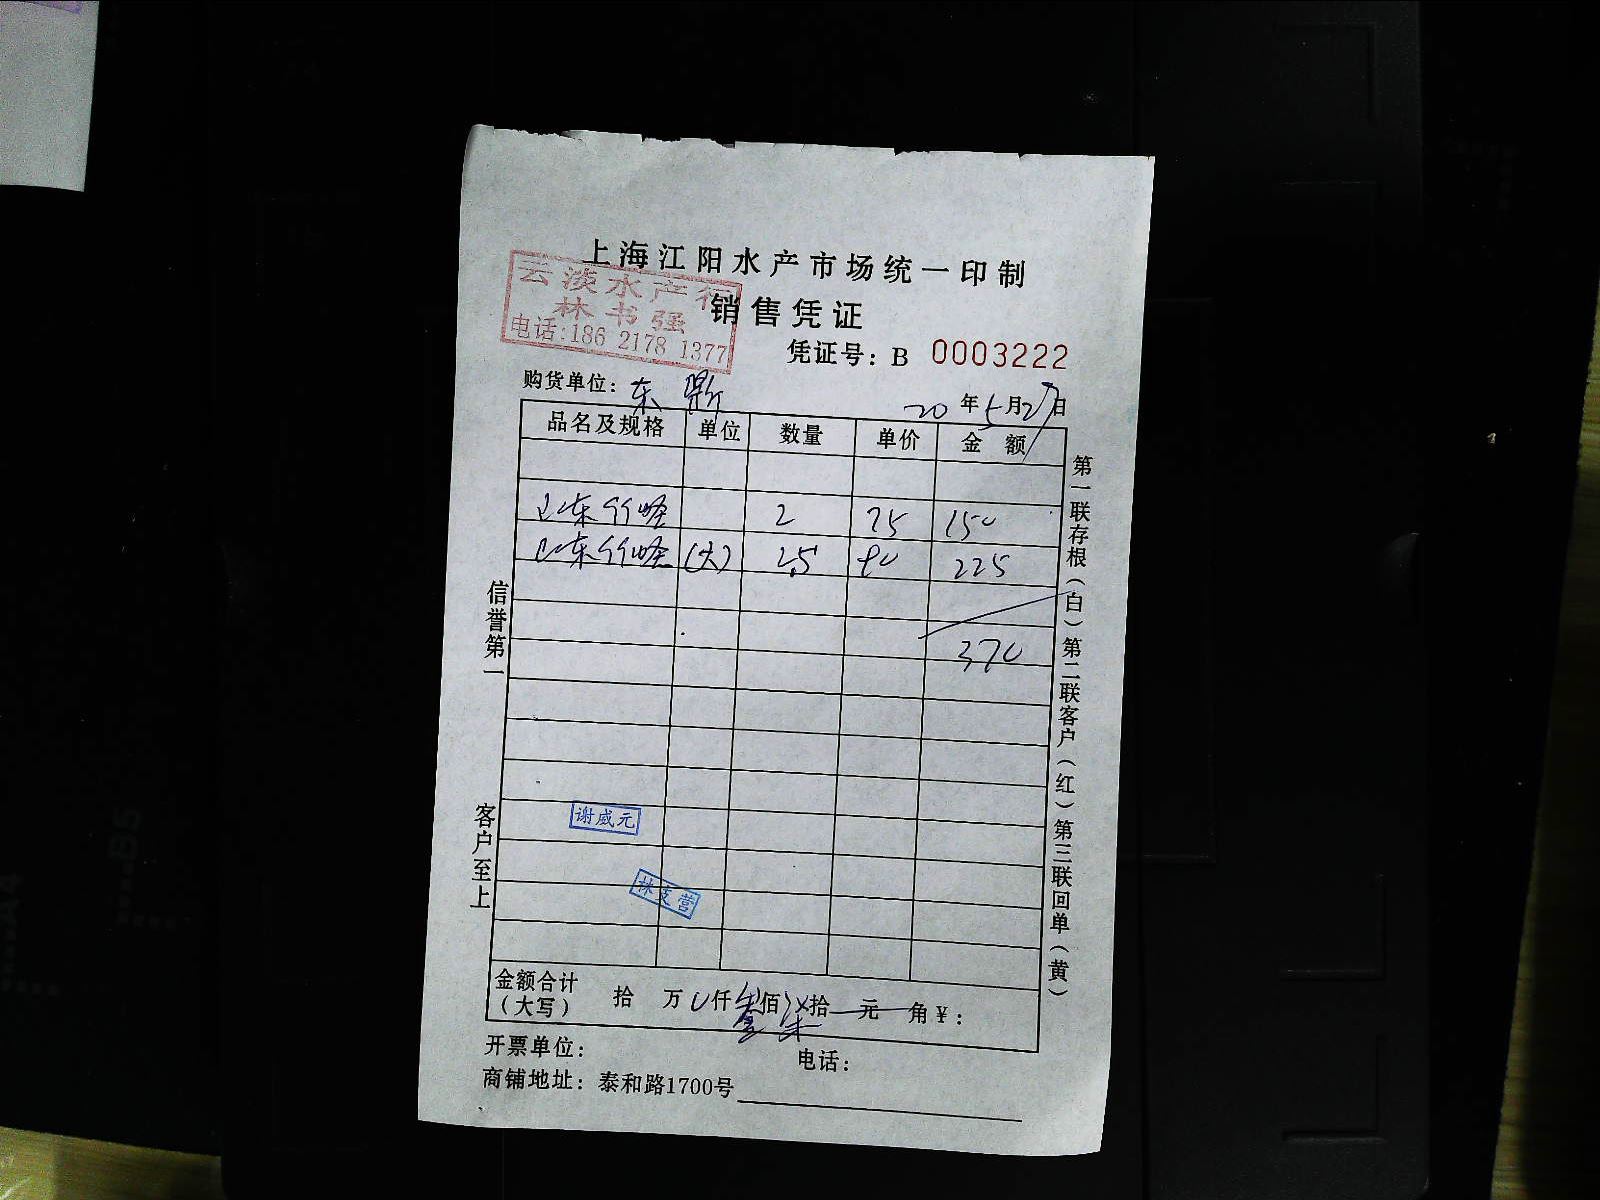 上海江阳水产市场统一印制
云淡水产行
林书强
电话:186 2178 1377
销售凭证
凭证号: B 0003222
购货单位: 东鼎
20 年 5 月 27 日
品名及规格 单位 数量 单价 金额
山东竹蛏 2 75 150
山东竹蛏 (大) 2.5 90 225
370
信誉第一
客户至上
第一联存根(白)第二联客户(红)第三联回单(黄)
谢威元
林支营
金额合计(大写) 拾 万 0 仟 叁 佰 柒 拾 元 角 ¥:
开票单位: 电话:
商铺地址: 泰和路1700号